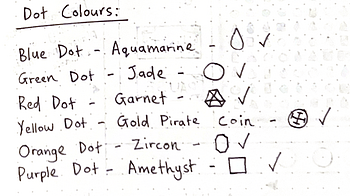 Dot Colours:
Blue Dot - Aquamarine - ✓
Green Dot - Jade - ✓
Red Dot - Garnet - ✓
Yellow Dot - Gold Pirate Coin - ✓
Orange Dot - Zircon - ✓
Purple Dot - Amethyst - ✓